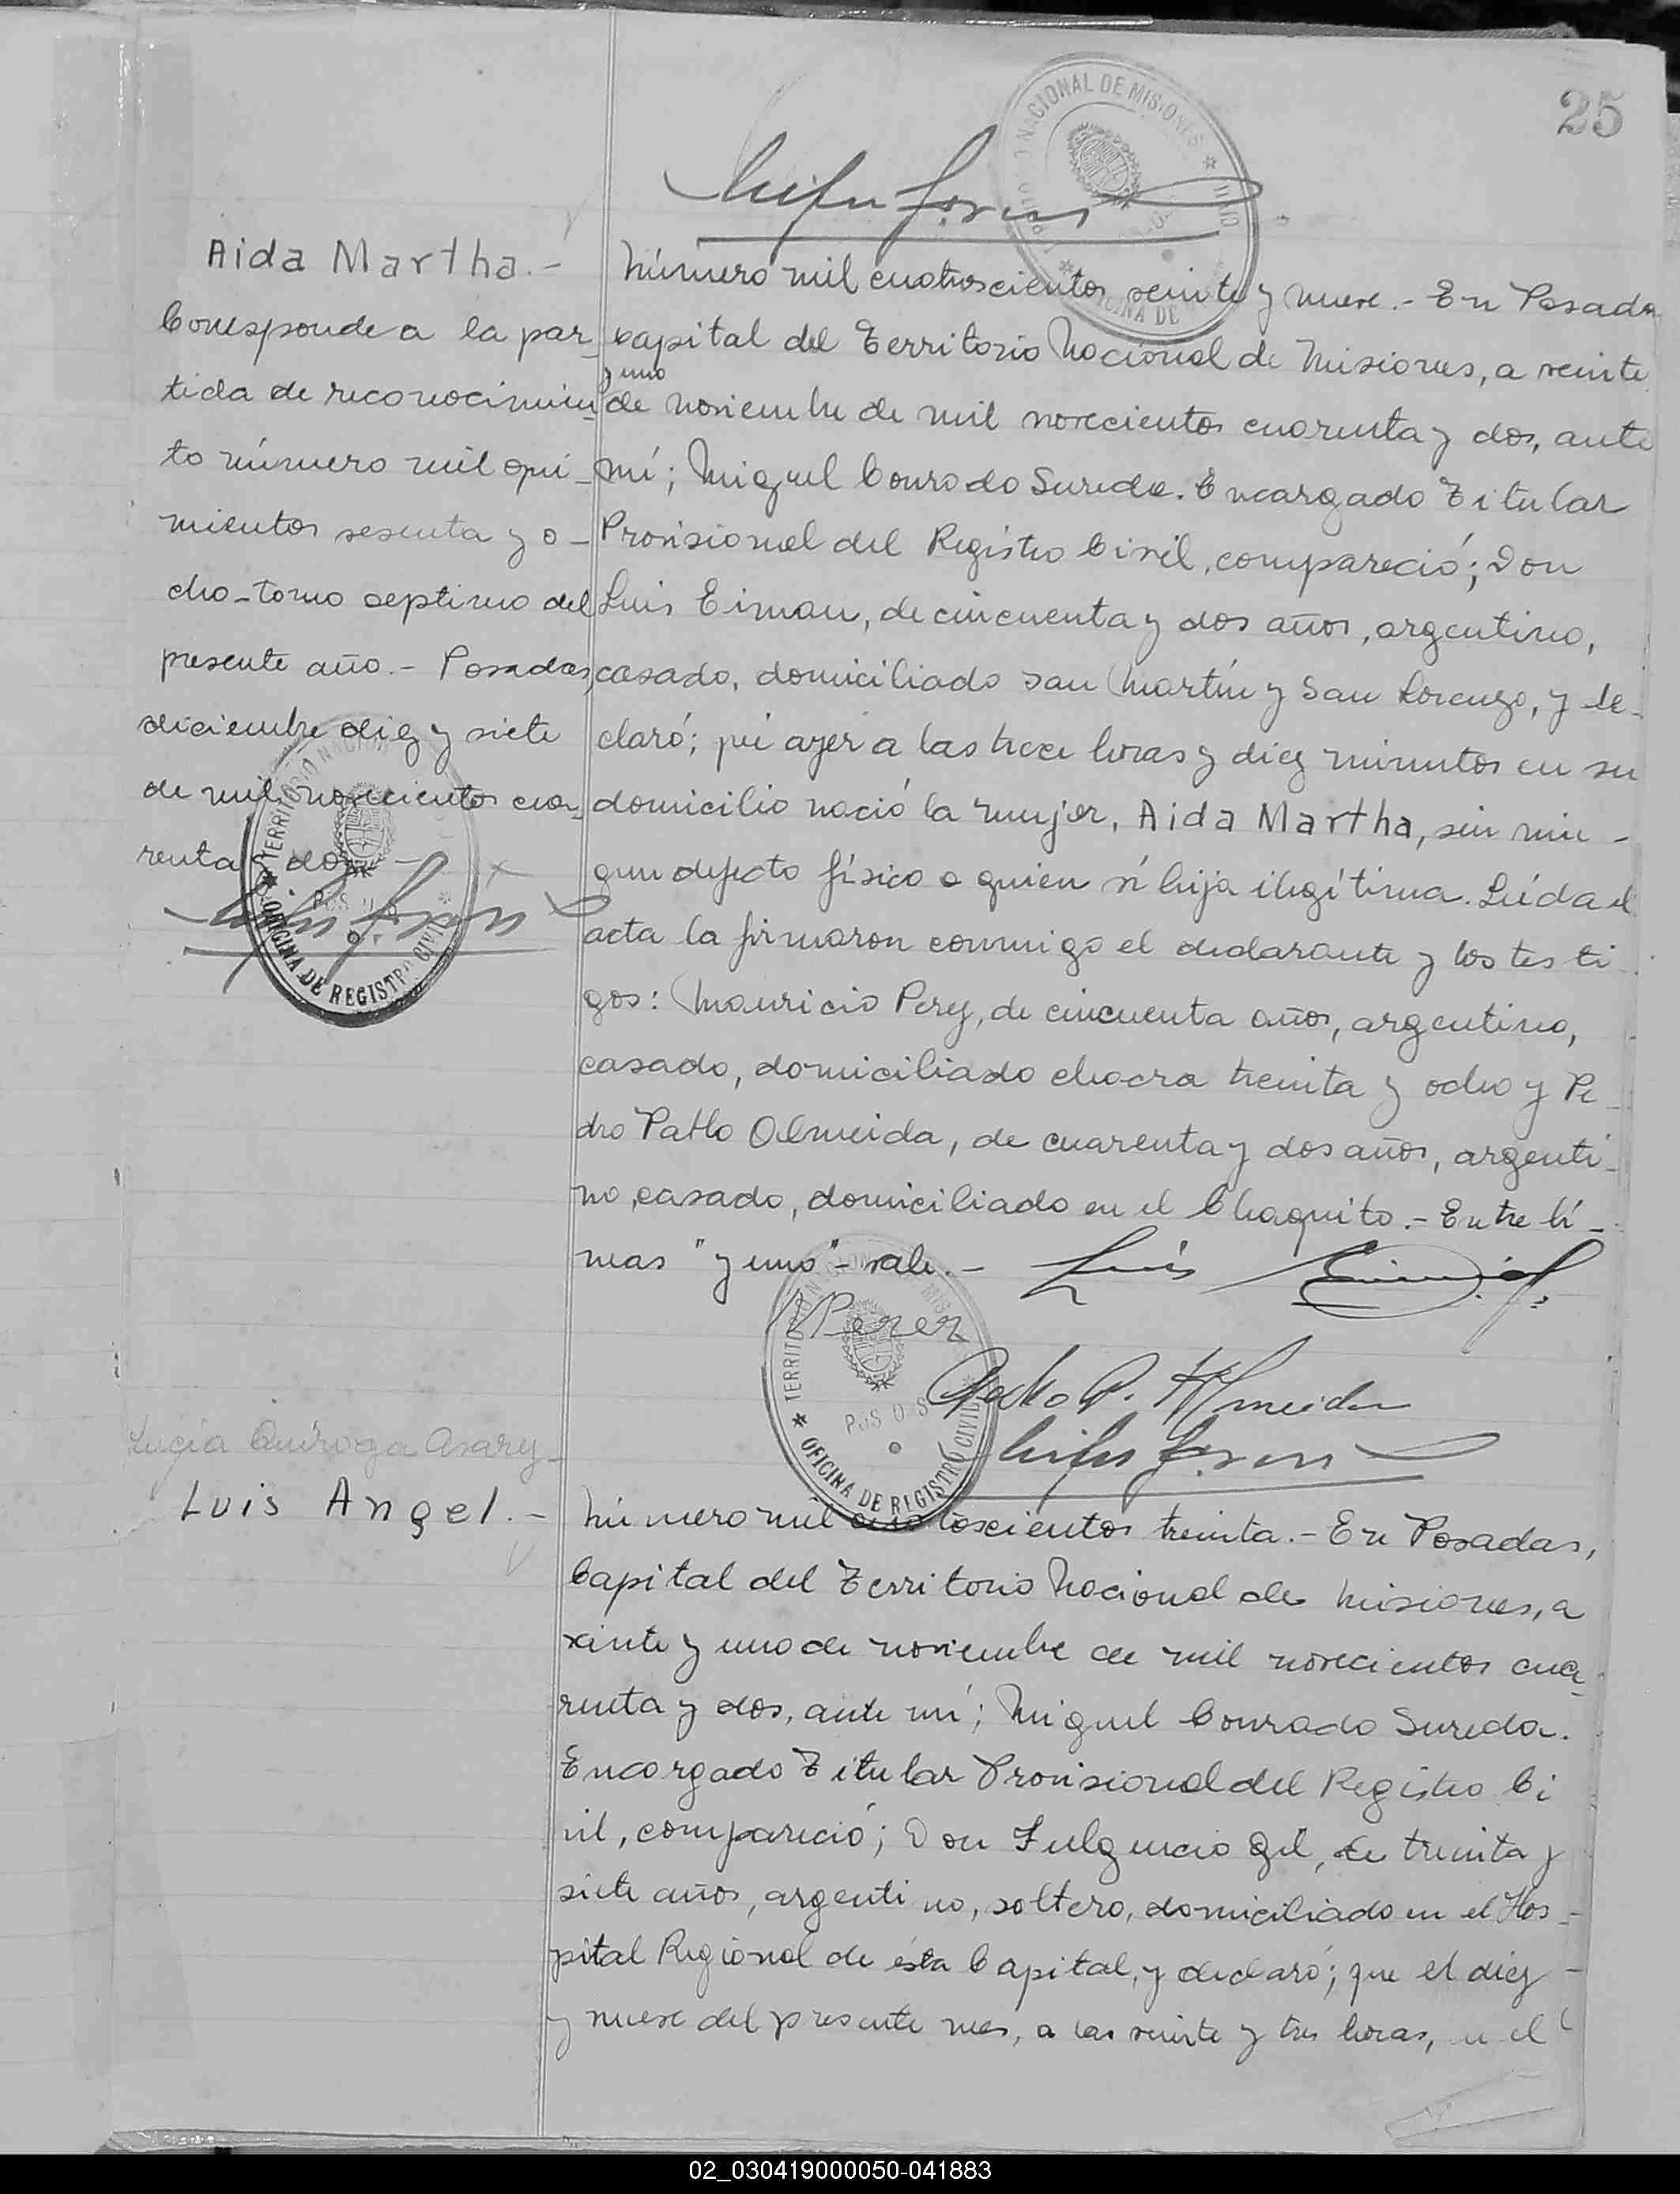 25
TERRITORIO NACIONAL DE MISIONES
OFICINA DE
Aida Martha.-
Corresponde a la par-
tida de reconocimien-
to número mil qui-
nientos sesenta y o-
cho-tomo septimo del
presente año.- Posadas,
diciembre diez y siete
de mil novecientos cua-
renta y dos.-
TERRITORIO NACIONAL
POSADAS
OFICINA DE REGISTRO CIVIL
Número mil cuatroscientos veinte y nueve.- En Posadas
capital del Territorio Nacional de Misiones, a veinte
y uno
de noviembre de mil novecientos cuarenta y dos, ante
mí; Miguel Conrado Sureda. Encargado Titular
Provisional del Registro Civil, compareció; Don
Luis Eiman, de cincuenta y dos años, argentino,
casado, domiciliado San Martín y San Lorenzo, y de-
claró; que ayer a las trece horas y diez minutos en su
domicilio nació la mujer, Aida Martha, sin nin-
gun defecto físico o quien es hija ilegítima. Leída el
acta la firmaron conmigo el declarante y los testi-
gos: Mauricio Perez, de cincuenta años, argentino,
casado, domiciliado chacra treinta y ocho y Pe-
dro Pablo Olmeida, de cuarenta y dos años, argenti-
no, casado, domiciliado en el Chaquito.- Entre lí-
neas "y uno"- vale.- Luis
MPerez
Pedro P. Almeida
TERRITORIO NACIONAL DE MISIONES
POSADAS
OFICINA DE REGISTRO CIVIL
Lucia Quiroga
Luis Angel.-
Número mil cuatoscientos treinta.- En Posadas,
Capital del Territorio Nacional de Misiones, a
veinte y uno de noviembre de mil novecientos cua-
renta y dos, ante mí; Miguel Conrado Sureda.
Encargado Titular Provisional del Registro Ci
vil, compareció; Don Fulgencio Gil, de treinta y
siete años, argentino, soltero, domiciliado en el Hos-
pital Regional de ésta Capital, y declaró; que el diez-
y nueve del presente mes, a las veinte y tres horas, en el
02_030419000050-041883